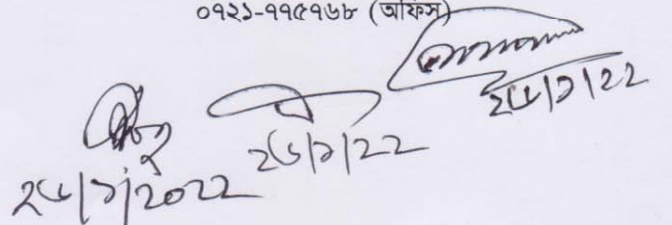 ০৭২১-৭৭৫৭৬৮ (অফিস)
২৬/১/২২
২৬/১/২২
২৬/১/২০২২